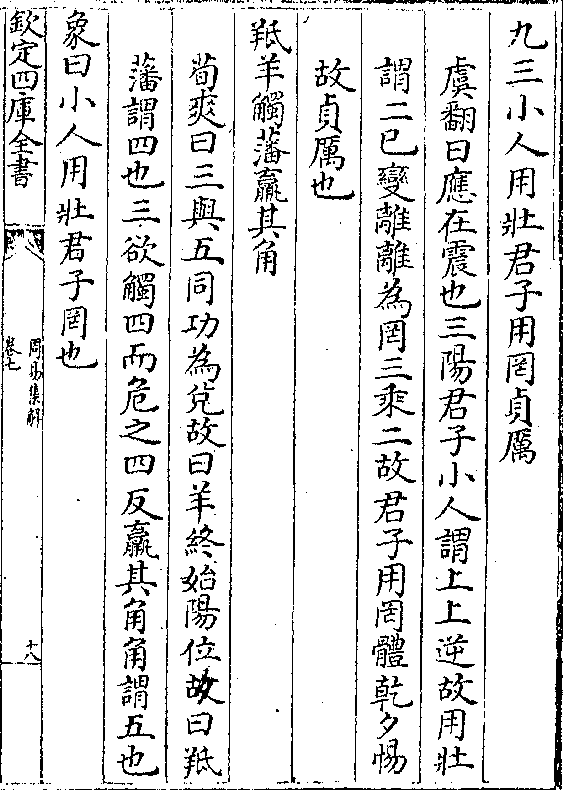 九三小人用壯君子用罔貞厲
虞翻曰應在震也三陽君子小人謂上上逆故用壯
謂二已變離離為罔三乘二故君子用罔體乾夕惕
故貞厲也
羝羊觸藩羸其角
荀爽曰三與五同功為兌故曰羊終始陽位故曰羝
藩謂四也三欲觸四而危之四反羸其角角謂五也
象曰小人用壯君子罔也
欽定四庫全書
周易集解
卷七
十八